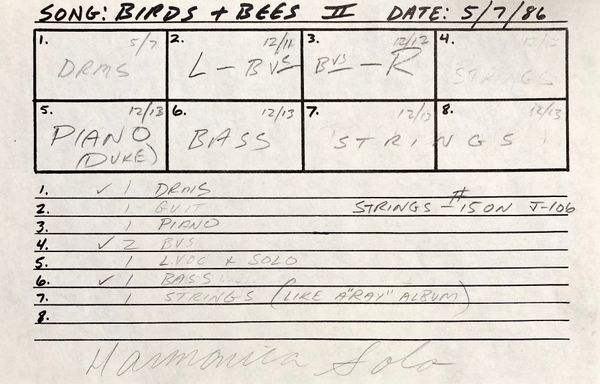 SONG: BIRDS + BEES II DATE: 5/7/86
1. 5/7 2. 12/11 3. 12/12 4. 12/12
DRMS L - BVS BVS - R STRINGS
5. 12/13 6. 12/13 7. 12/13 8. 12/13
PIANO BASS STRINGS
(DUKE)
1. ✓ 1 DRMS
2. 1 GUIT STRINGS - #15 ON J-106
3. 1 PIANO
4. ✓ 2 BVS
5. 1 L.VOC + SOLO
6. ✓ 1 BASS
7. 1 STRINGS (LIKE A "RAY" ALBUM)
8.
Harmonica Solo